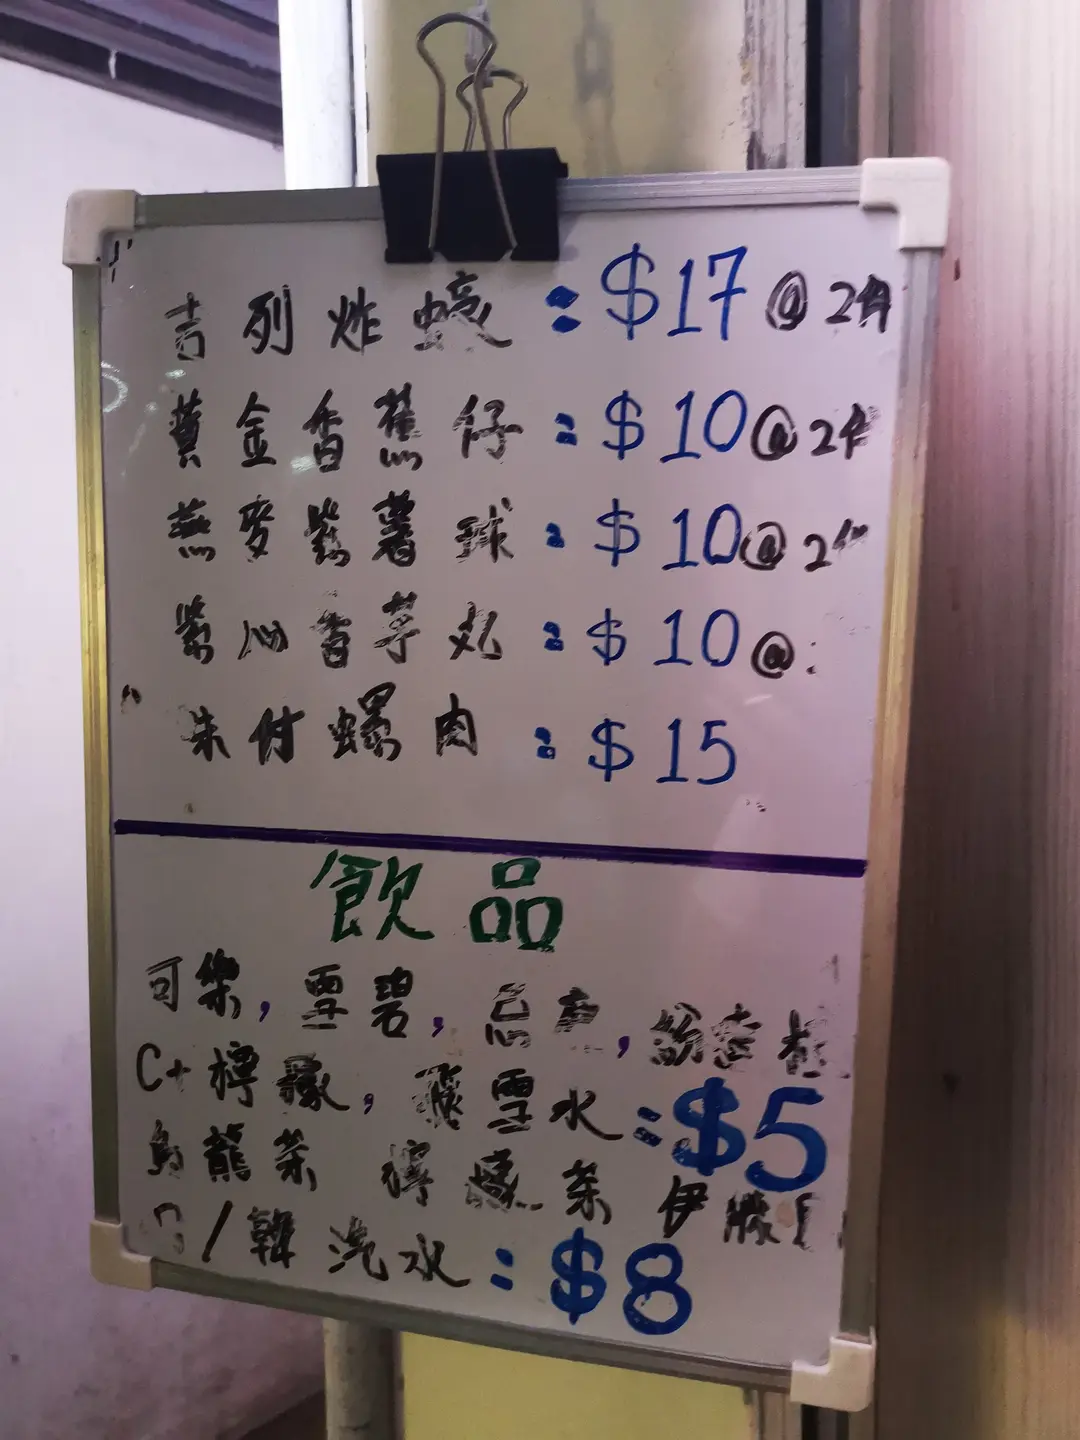 吉列炸蠔：$17@2件
黃金香蕉仔：$10@2件
燕麥紫薯球：$10@2
紫心香芋丸：$10@
朱付螺肉：$15
飲品
可樂，雪碧，忌廉，
C+檸檬，雪水：$5
烏龍茶 檸檬茶 伊藤
/韓汽水：$8